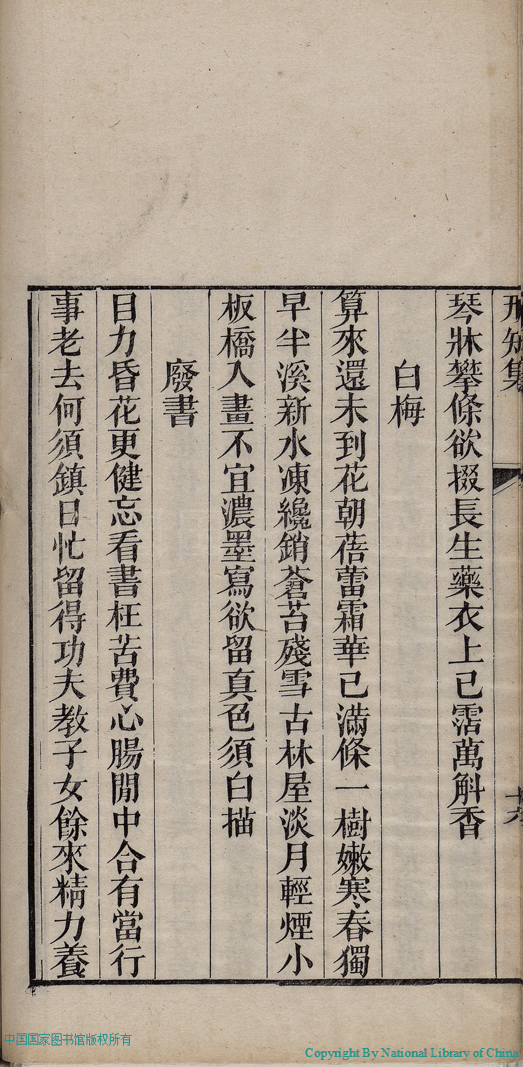 集
琴牀攀條欲掇長生藥衣上已霑萬斛香
白梅
算來還未到花朝蓓蕾霜華已滿條一樹嫩寒春獨
早半溪新水凍纔銷蒼苔殘雪古林屋淡月輕煙小
板橋入畫不宜濃墨寫欲留真色須白描
廢書
目力昏花更健忘看書枉苦費心腸閒中合有當行
事老去何須鎮日忙留得功夫教子女餘來精力養
中国国家图书馆版权所有
Copyright By National Library of China